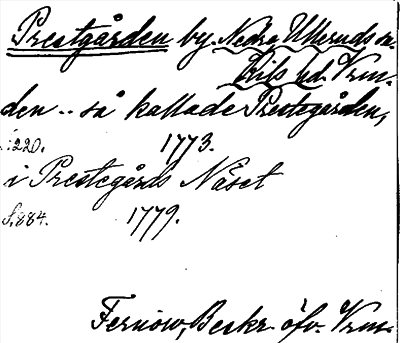 Prestgården by. Nedre Ulleruds sn.
Kils hd. Vrm.
den .. så kallade Prestegården,
s. 220. 1773.
i Prestegårds Näset
S. 884. 1779.
Fernow, Beskr. öfv. Vrm.